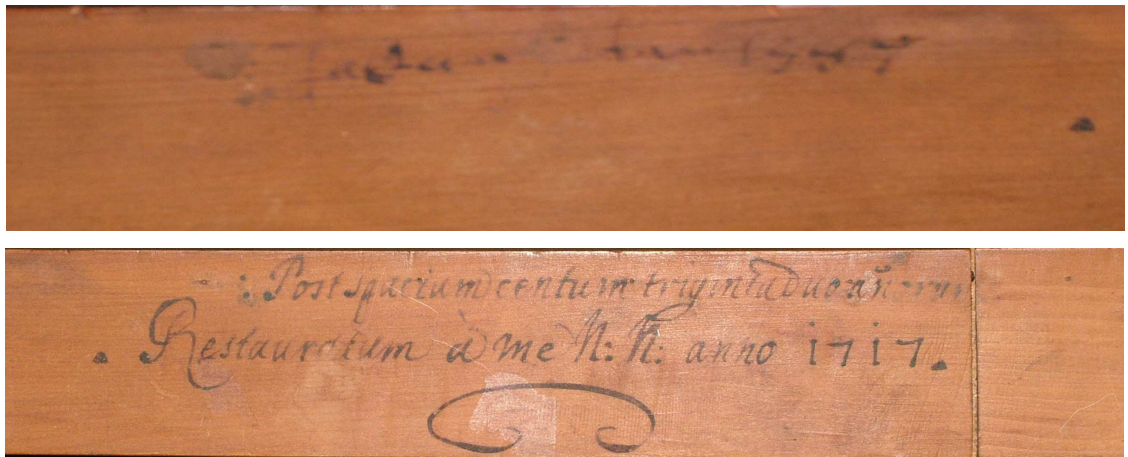 Post spacium centum triginta duo añorum
Restauratum à me N: N: anno 1717.